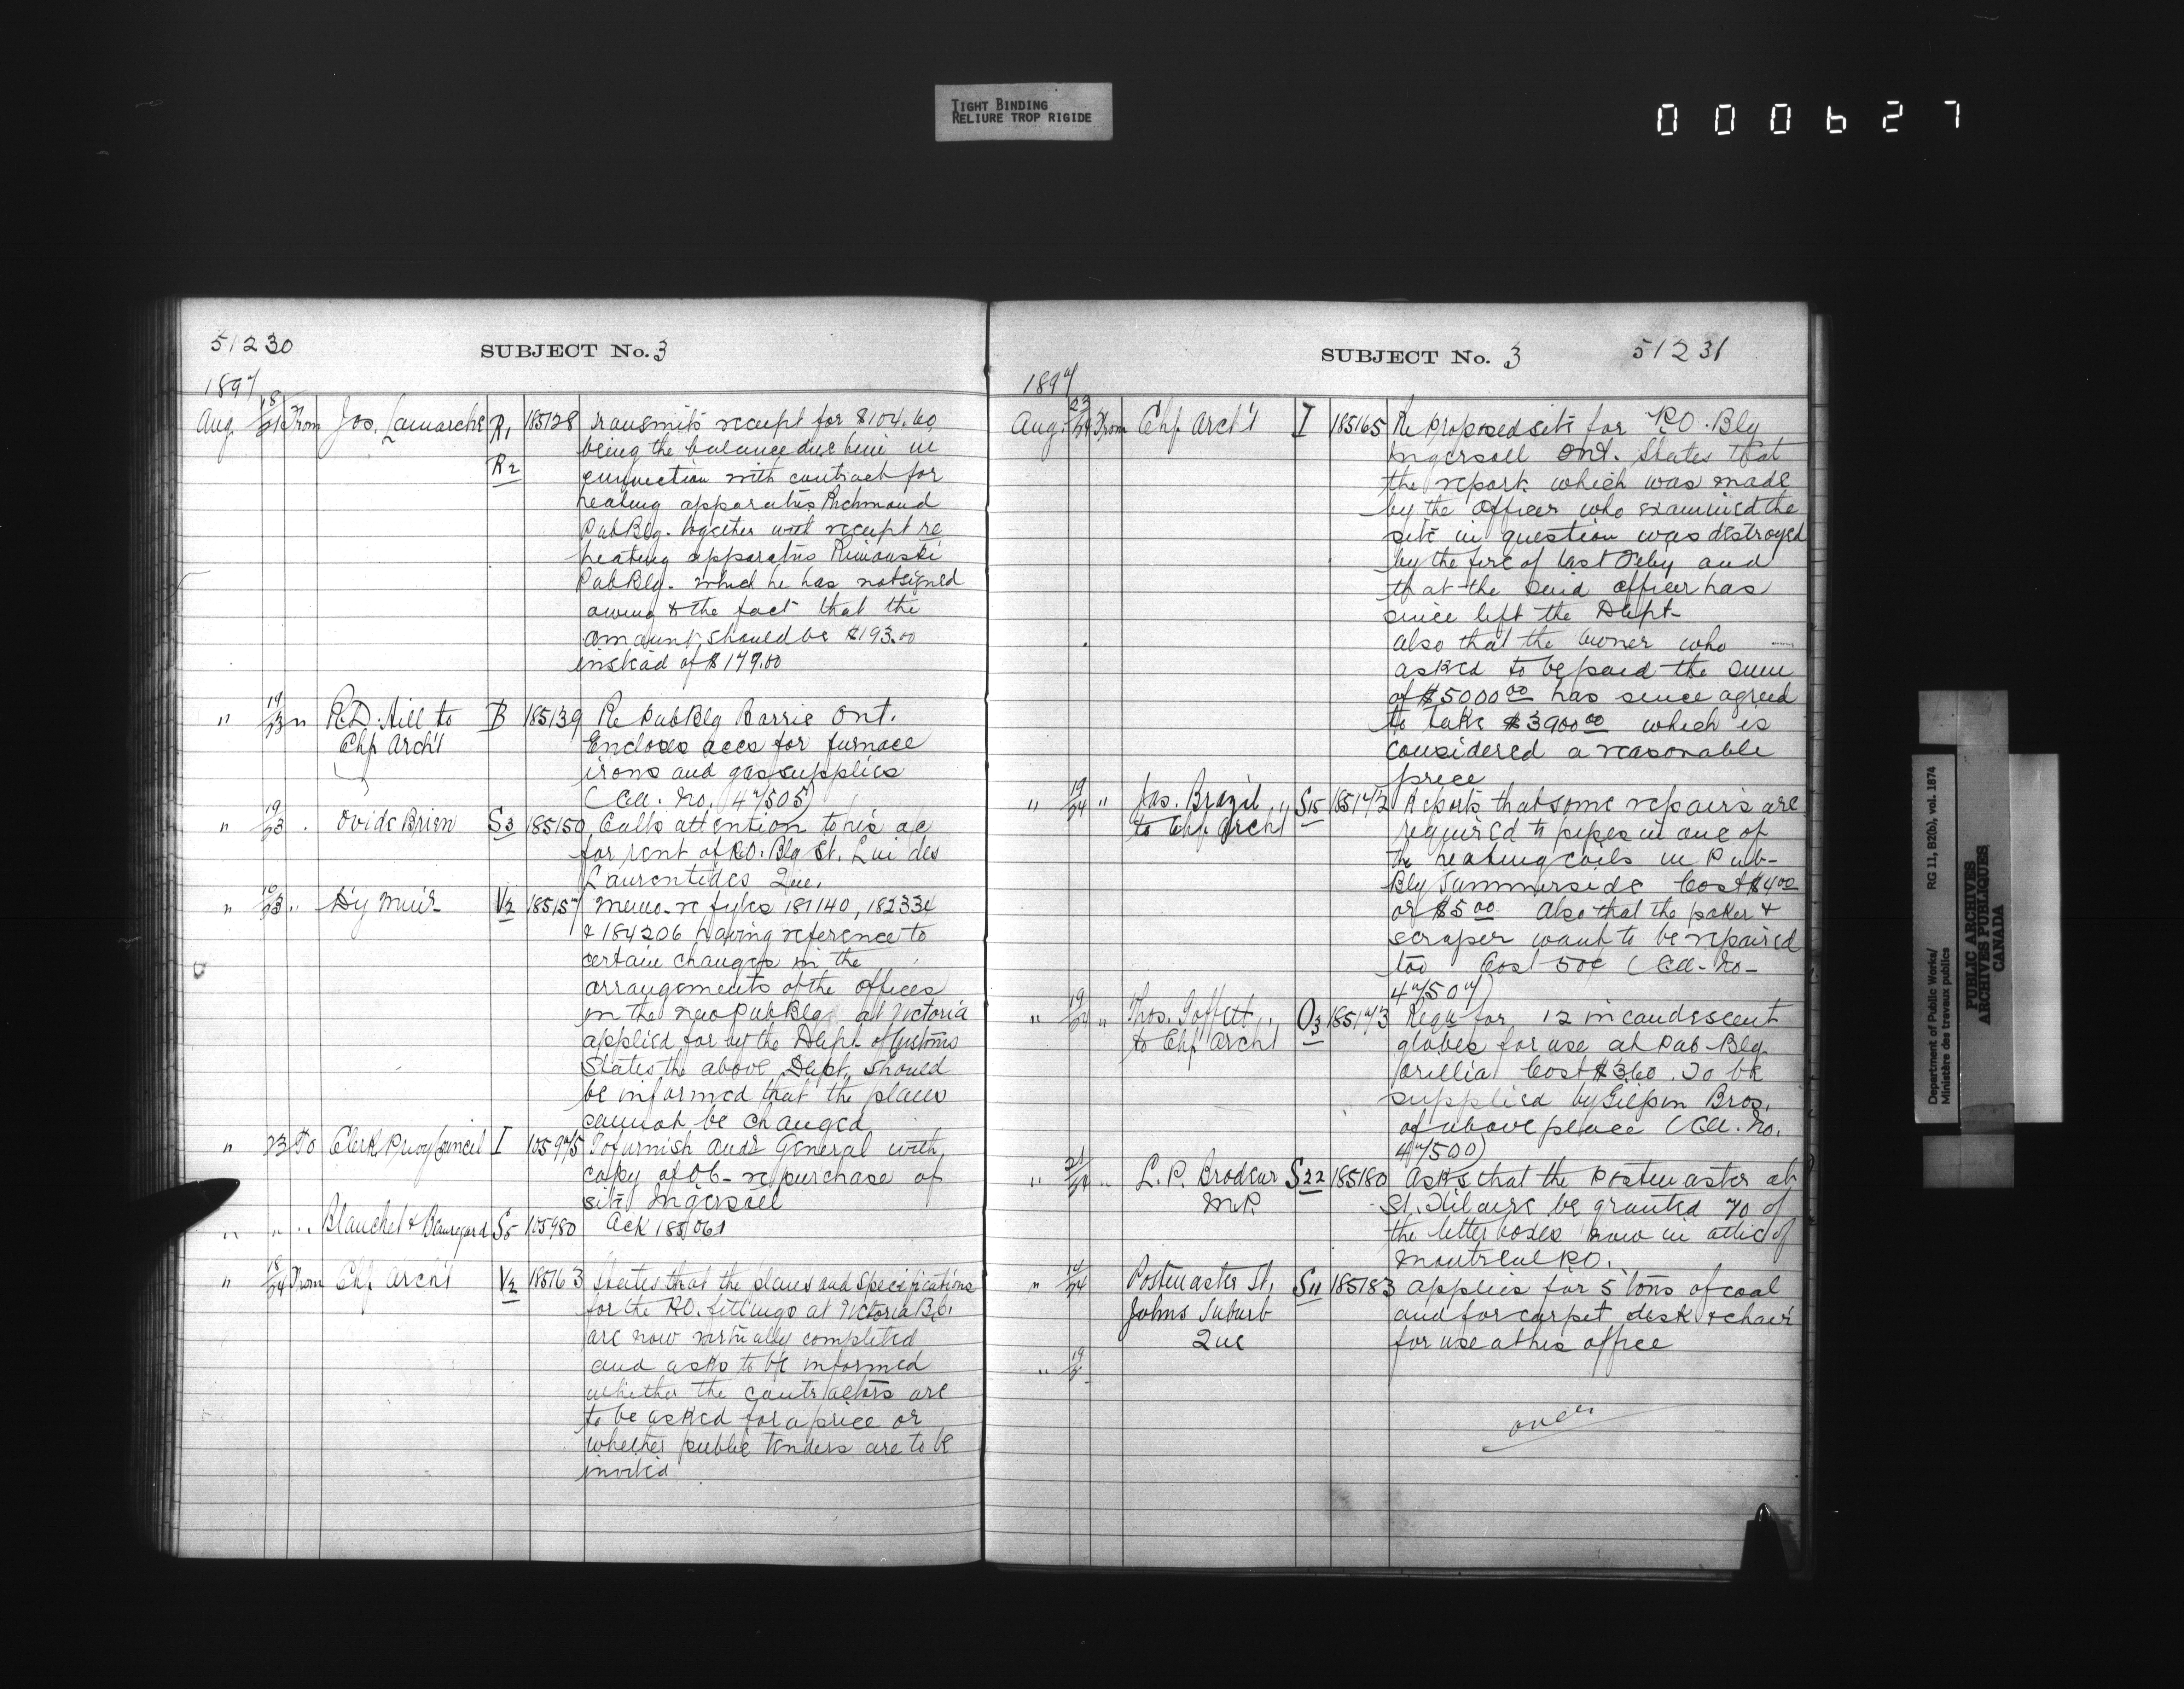 TIGHT BINDING
RELIURE TROP RIGIDE
000627
51230
SUBJECT No. 3
1897
Aug 18/21 From Jos. Lamarche R1 185128 transmits receipt for $104.60
R2 being the balance due him in
connection with contract for
heating apparatus Richmond
Pub Blg. together with receipt re
heating apparatus Rimouski
Pub Blg. which he has not signed
owing to the fact that the
amount should be $193.00
instead of $179.00
" 19/23 " R.D. Hill to B 185139 Re Pub Blg Barrie Ont.
Chf Arch't Encloses accs for furnace
irons and gas supplies
(Cll. No. 47505)
" 19/23 . Ovide Brien S3 185150 Calls attention to his a/c
for rent of P.O. Blg St. Lin des
Laurentides Que.
" 23 " Dy Min'r V2 185157 Memo. re fyles 181140, 182334
& 184206 having reference to
certain changes in the
arrangements of the offices
in the new Pub Blg at Victoria
applied for by the Dept. of Customs
States the above Dept. should
be informed that the plans
cannot be changed
" 23 To Clerk Privy Council I 105975 To furnish Audr General with
copy of O6- re purchase of
site Ingersoll
" " .. Blanchet & Beauregard S5 105980 Ack 185061
" 18/24 From Chf Arch't V2 185163 States that the plans and specifications
for the P.O. fittings at Victoria B.C.
are now virtually completed
and asks to be informed
whether the contractors are
to be asked for a price or
whether public tenders are to be
invited
SUBJECT No. 3
51231
1897
Aug. 23/24 From Chf Arch't I 185165 Re proposed site for P.O. Blg
Ingersoll Ont. States that
the report which was made
by the Officer who examined the
site in question was destroyed
by the fire of last Feby and
that the said officer has
since left the Dept-
also that the owner who
asked to be paid the sum
of $5000.00 has since agreed
to take $3900.00 which is
considered a reasonable
price
" 19/24 " Jas. Brazil S15 185172 Reports that some repairs are
to Chf Arch't required to pipes in one of
the heating coils in Pub-
Blg Summerside Cost $4.00
or $5.00 Also that the poker &
scraper want to be repaired
too Cost 50¢ (Cll-No-
47507)
" 19/24 " Thos. Goffatt O3 185173 Reqn for 12 incandescent
to Chf Arch't globes for use at Pub-Blg
Orillia Cost $3.60. To be
supplied by Gilpin Bros.
of above place (Cll. No.
47500)
" 21/24 " L.P. Brodeur S22 185180 Asks that the Postmaster at
M.P. St. Hilaire be granted 70 of
the letter boxes now in attic of
Montreal P.O.
" 24 Postmaster St. S11 185183 applies for 5 tons of coal
Johns Suburb and for carpet, desk & chair
Que for use at his office
" 19
over
Department of Public Works/ RG 11, B2(b), vol. 1874
Ministère des travaux publics
PUBLIC ARCHIVES
ARCHIVES PUBLIQUES
CANADA